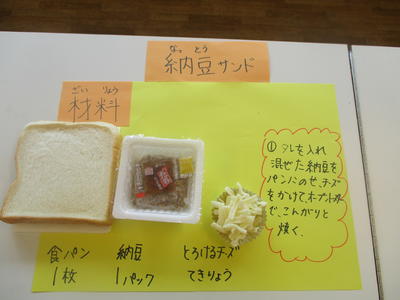 なっ とう
納豆サンド
ざい りょう
材料
① タレを入れ
混ぜた納豆を
パンにのせ、チーズ
をかけて、オーブントースター
で、こんがりと
焼く。
食パン 納豆 とろけるチーズ
1枚 1パック てきりょう